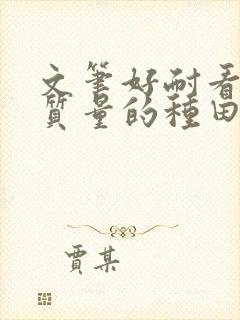 文筆好耐看
質量的種田
賈某